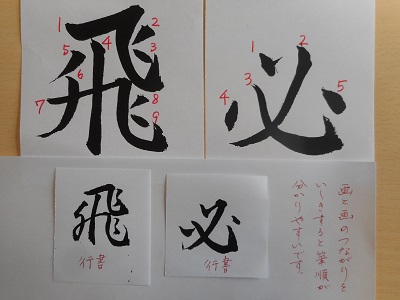 飛
1
2
3
4
5
6
7
8
9
必
1
2
3
4
5
飛
行書
必
行書
画と画のつながりを
いしきすると筆順が
分かりやすいです。